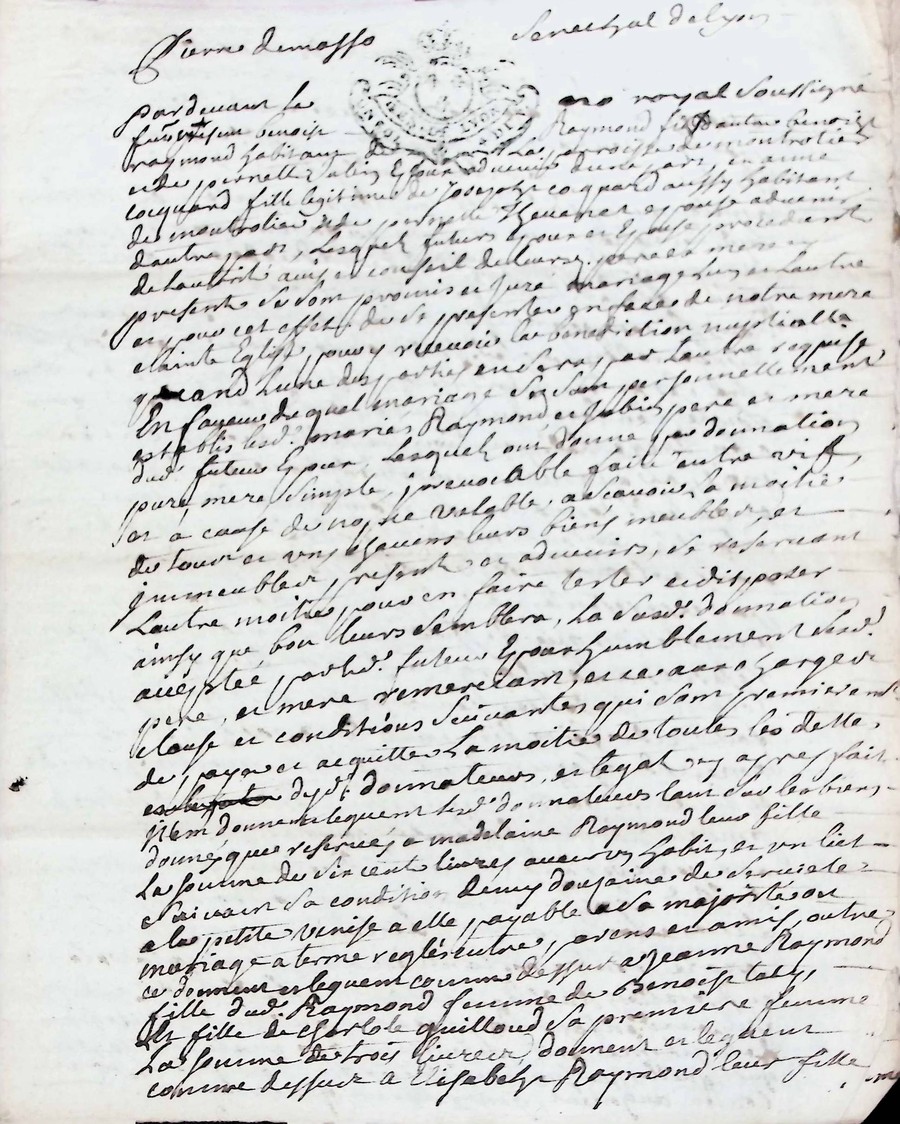 Pierre demasso Senechal de Lyon
Pardevant le no royal Soussigné
furent present benoist Raymond fils d'autre benoist
raymond habitant de La parroisse de montrotier
et de pernette Jubin Epoux advenir d'une part, et anne
Cocquard fille legitime de Joseph cocquard aussy habitant
de montrotier et de pernette Thevenet epouse advenir
d'autre part, Lesquels futurs epoux et Epouse procedent
de Lauth.té avis et conseil de leursd. peres et meres cy
present Se sont promis et juré mariage Lun et Lautre
et pour cet effet de se presenter en face de notre mere
Sainte Eglise pour y recevoir la benediction nuptialle
quand Lune des parties en Sera par Lautre requise
En faveur duquel mariage Se Sont personnellement
establis lesd. mariés Raymond et Jubin pere et mere
dud. futeur Epoux, Lesquels ont donné par donnation
pure, mere Simple, jrevocable faite entre vifs,
et a cause de nopce valable, a scavoir La moitié
de tous et uns chacuns leurs biens meubles, et
jmmeubles, present et advenirs, se reservant
Lautre moitié pour en faire tester et disposer
ainsy que bon leurs Semblera, La Susd. donnation
acceptée par led. futeur Epoux humblement Sesd.
pere, et mere remerciant, et ce aux charges
clause et conditions Suivantes qui Sont premierem.t
de payer et acquitter La moitié de toutes les dettes
desd. donnateurs, et legat cy apres fait
jtem donnent et leguent lesd. donnateurs tant Sur les biens
donnés que reservés a madelaine Raymond leur fille
La Somme de Six cent livres avec un habit, et un liet
Suivant Sa condition demy douzaine de Serviete
a la petite venise a elle payable a Sa majorité ou
mariage a terme reglés entre parens et amis, outre
ce donnent et leguent comme dessus a Jeanne Raymond
fille dud. Raymond femme de Benoist taly,
et fille de Charlote guilloud Sa premiere femme
La Somme de trois livres, donnent et leguent
comme dessus a Elisabeth Raymond leur fille